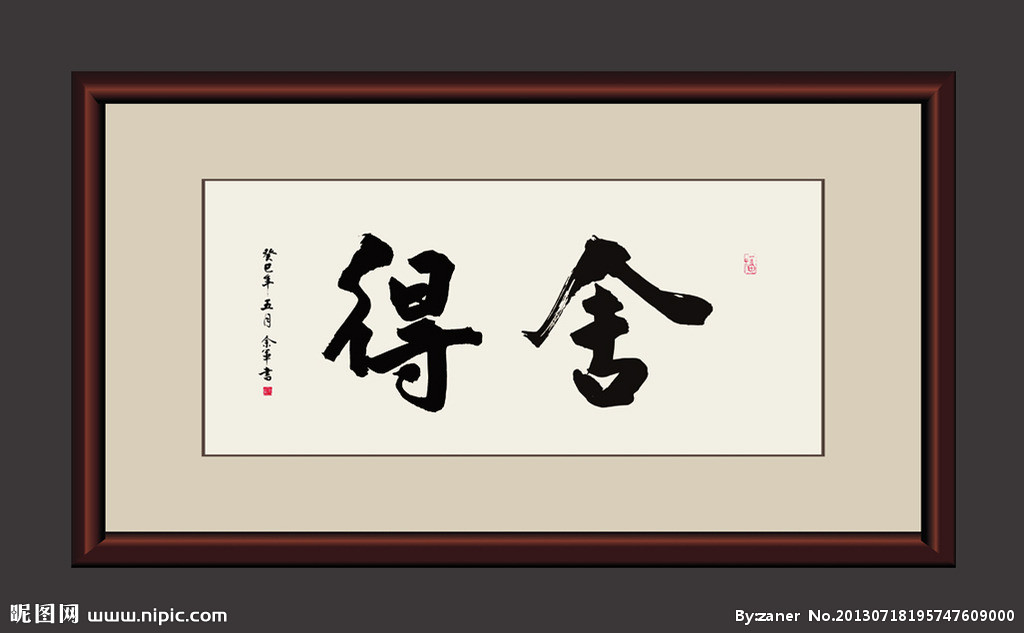 舍得
癸巳年五月余軍書
昵图网 www.nipic.com
By:zaner No.20130718195747609000